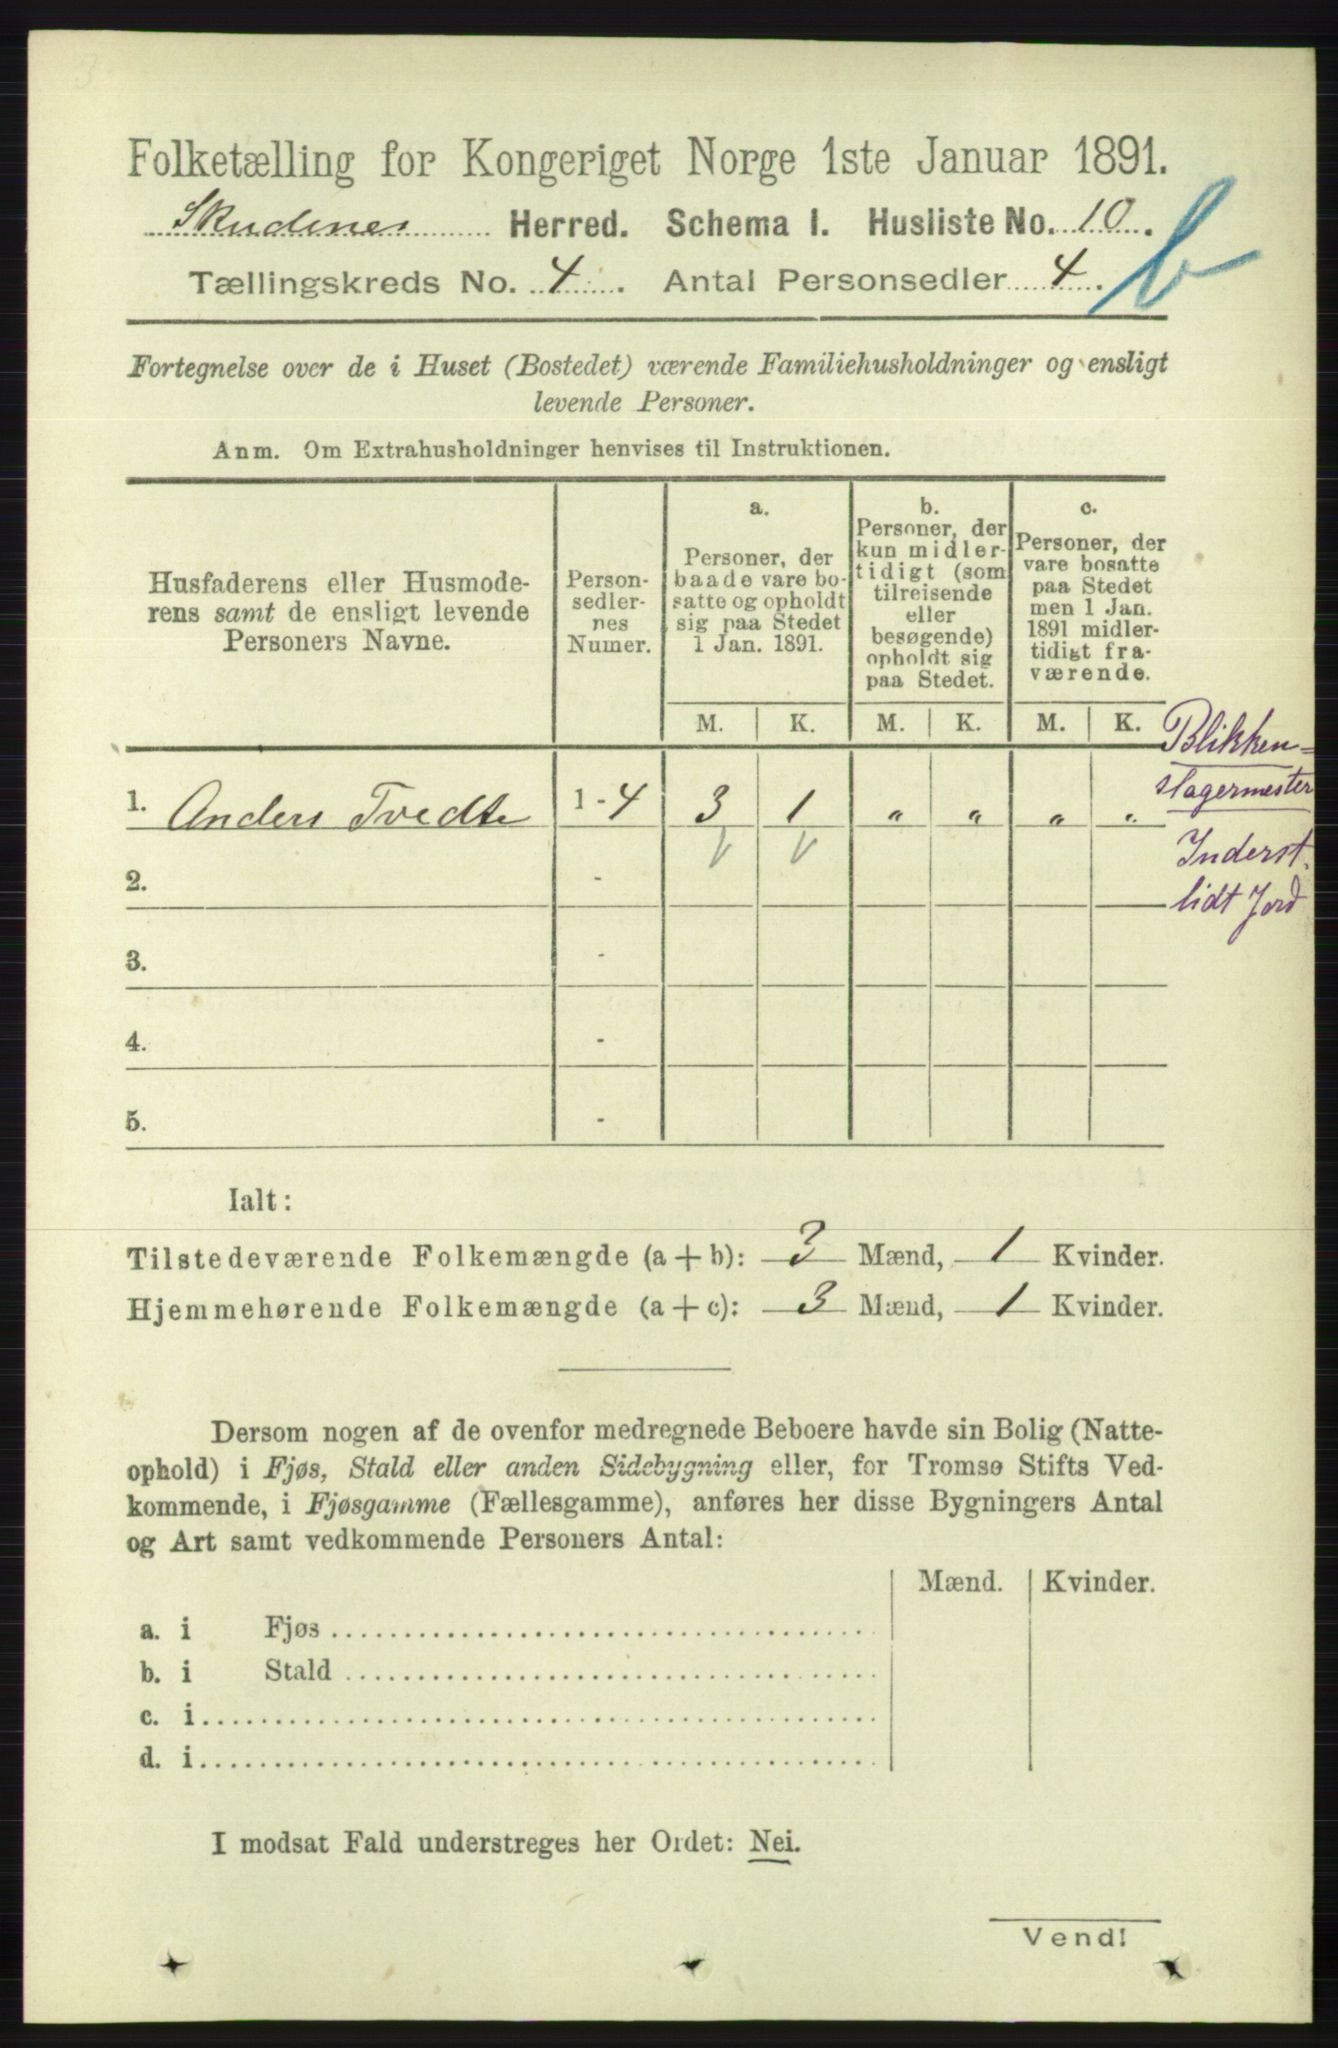 Folketælling for Kongeriget Norge 1ste Januar 1891.
Skudenes Herred. Schema I. Husliste No. 10.
b
Tællingskreds No. 4. Antal Personsedler 4.
Fortegnelse over de i Huset (Bostedet) værende Familiehusholdninger og ensligt
levende Personer.
Anm. Om Extrahusholdninger henvises til Instruktionen.
Husfaderens eller Husmode-
rens samt de ensligt levende
Personers Navne.
Person-
sedler-
nes
Numer.
a.
Personer, der
baade vare bo-
satte og opholdt
sig paa Stedet
1 Jan. 1891.
b.
Personer, der
kun midler-
tidigt (som
tilreisende
eller
besøgende)
opholdt sig
paa Stedet.
c.
Personer, der
vare bosatte
paa Stedet
men 1 Jan.
1891 midler-
tidigt fra-
værende.
M. K. M. K. M. K.
Blikken=
slagermester
Inderst.
lidt Jord
1. Anders Tvedte 1 - 4 3 1 " " " "
2. -
3. -
4. -
5. -
Ialt:
Tilstedeværende Folkemængde (a + b): 3 Mænd, 1 Kvinder.
Hjemmehørende Folkemængde (a + c): 3 Mænd, 1 Kvinder.
Dersom nogen af de ovenfor medregnede Beboere havde sin Bolig (Natte-
ophold) i Fjøs, Stald eller anden Sidebygning eller, for Tromsø Stifts Ved-
kommende, i Fjøsgamme (Fællesgamme), anføres her disse Bygningers Antal
og Art samt vedkommende Personers Antal:
Mænd. Kvinder.
a. i Fjøs
b. i Stald
c. i
d. i
I modsat Fald understreges her Ordet: Nei.
Vend!